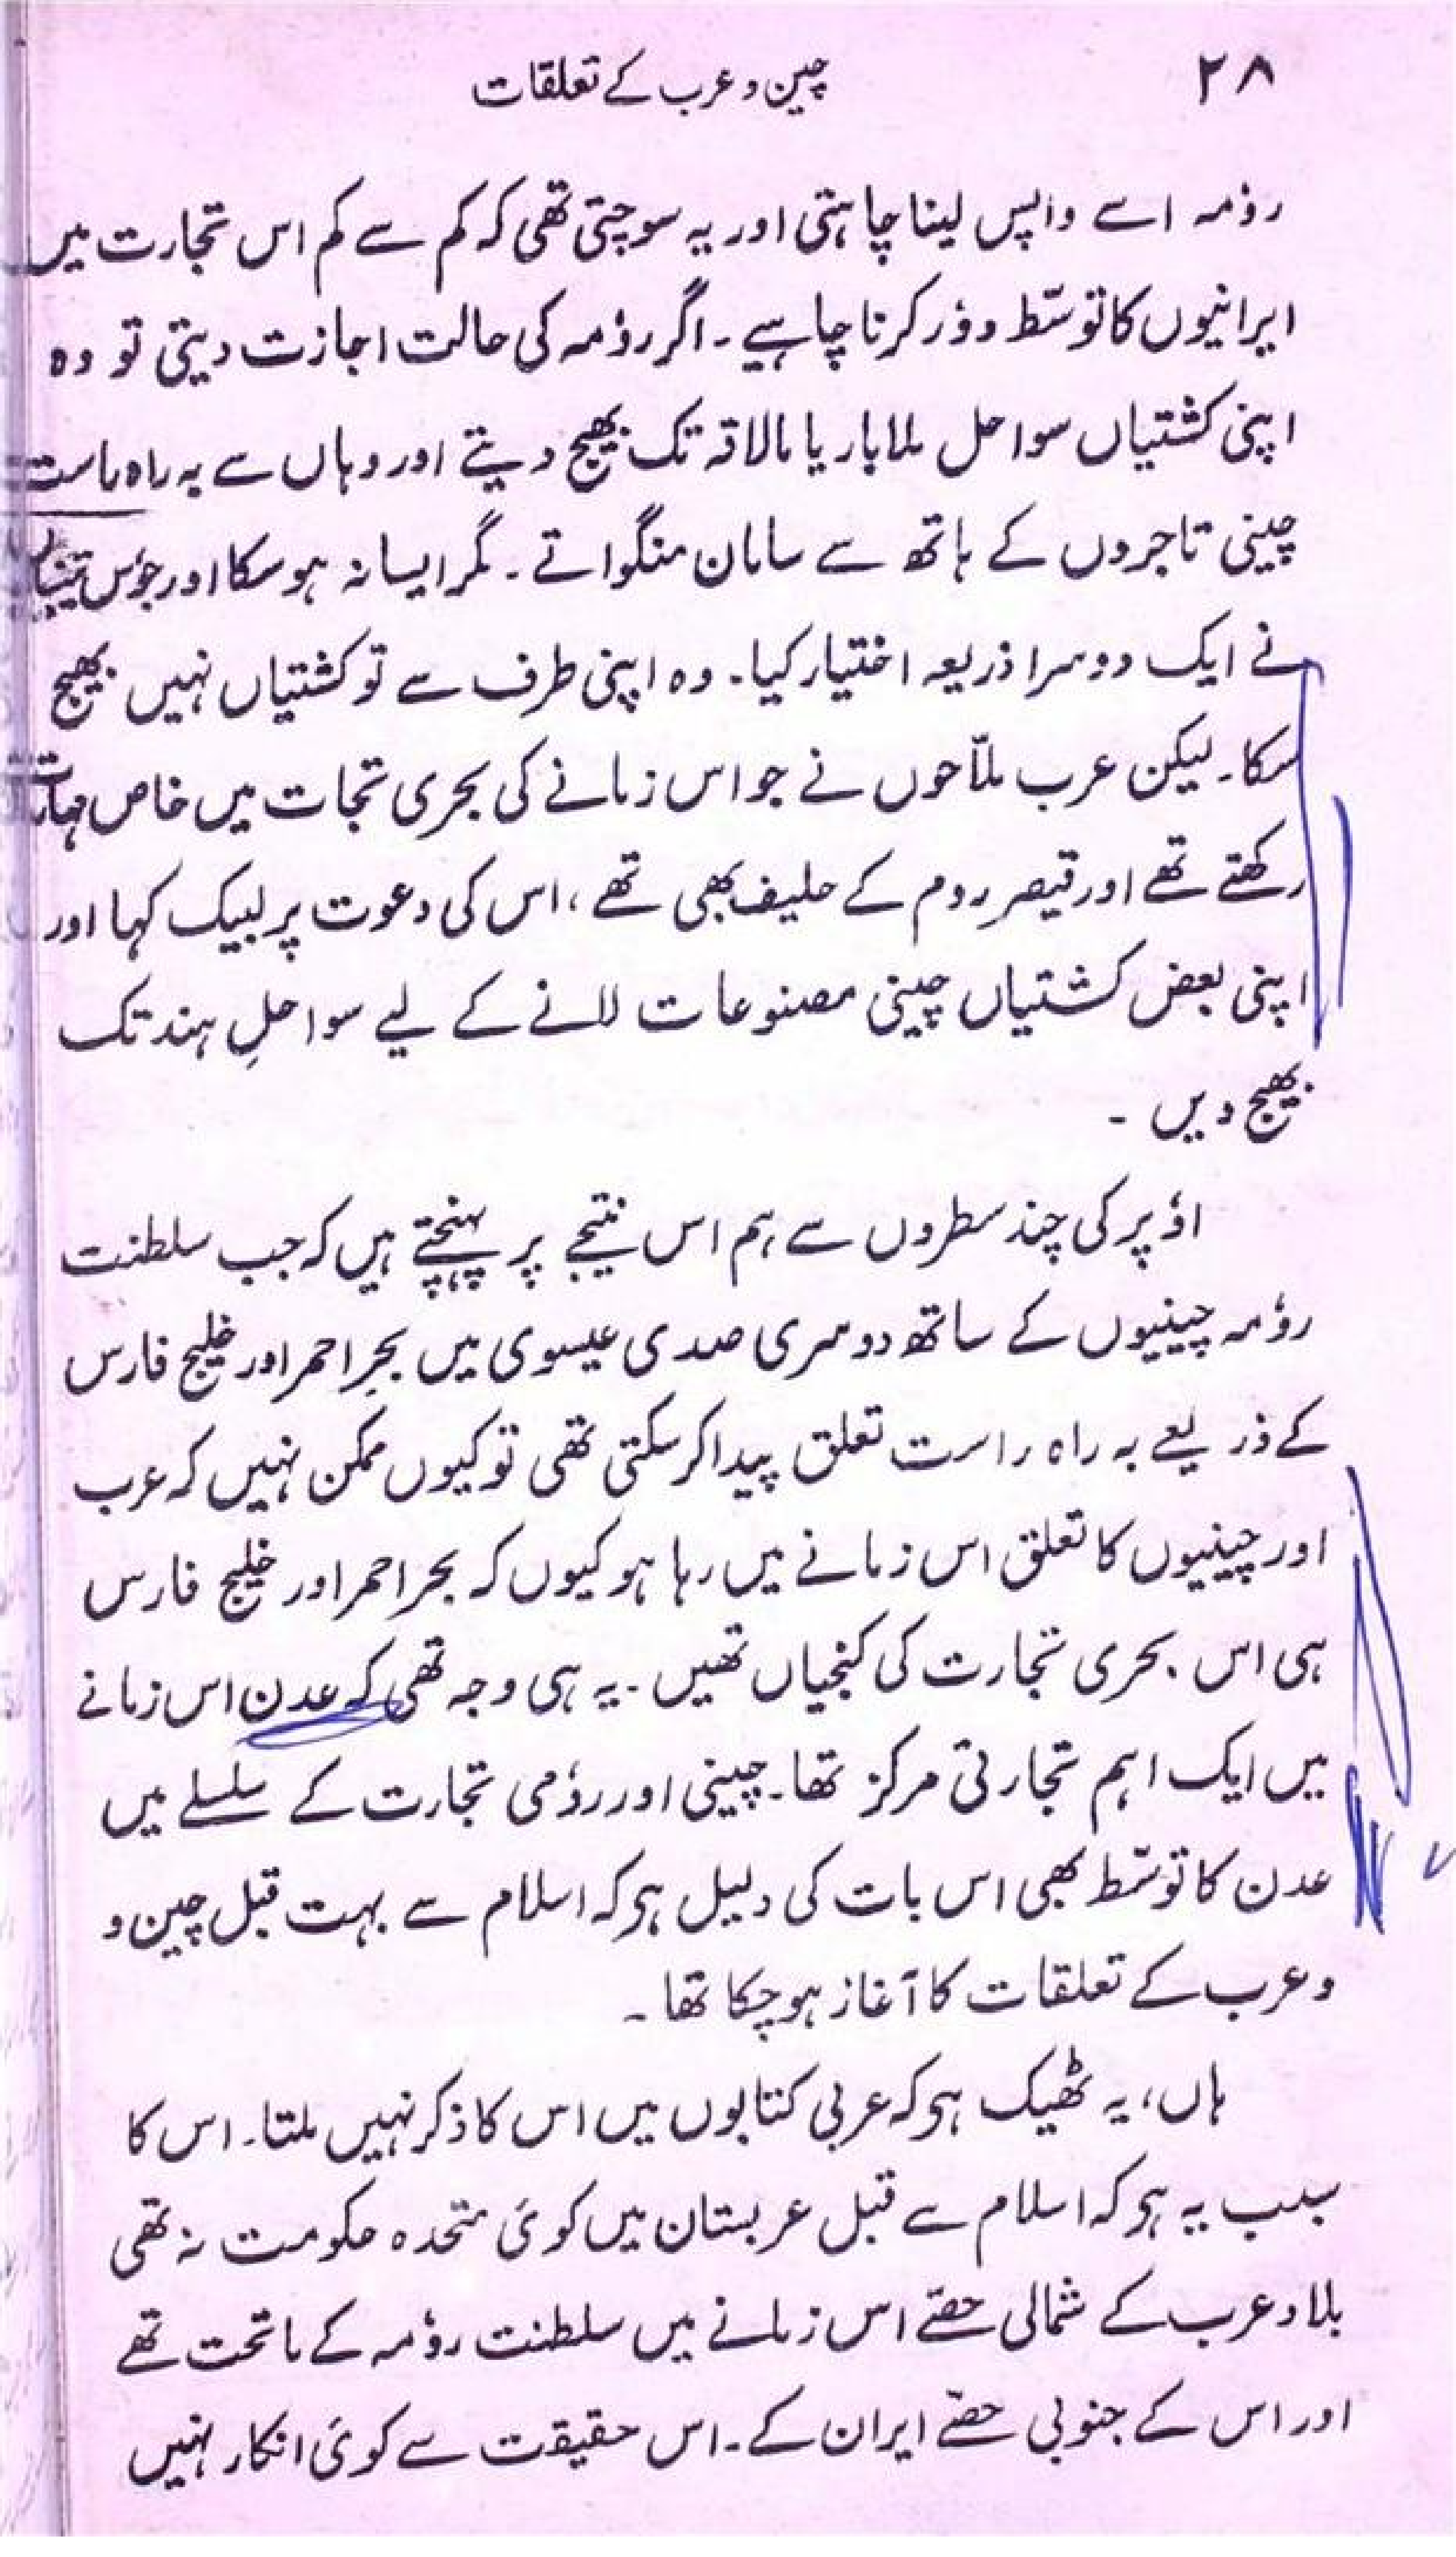 ۲۸
چین و عرب کے تعلقات
رؤمہ اسے واپس لینا چاہتی اور یہ سوچتی تھی کہ کم سے کم اس تجارت میں
ایرانیوں کا توسّط دؤر کرنا چاہیے ۔ اگر رؤمہ کی حالت اجازت دیتی تو وہ
اپنی کشتیاں سواحل ملابار یا مالاقہ تک بھیج دیتے اور وہاں سے بہ راہ راست
چینی تاجروں کے ہاتھ سے سامان منگواتے ۔ مگر ایسا نہ ہو سکا اور
نے ایک دوسرا ذریعہ اختیار کیا ۔ وہ اپنی طرف سے تو کشتیاں نہیں بھیج
سکا ۔ لیکن عرب ملّاحوں نے جو اس زمانے کی بحری تجات میں خاص مہارت
رکھتے تھے اور قیصر روم کے حلیف بھی تھے ، اس کی دعوت پر لبیک کہا اور
اپنی بعض کشتیاں چینی مصنوعات لانے کے لیے سواحلِ ہند تک
بھیج دیں ۔
اؤپر کی چند سطروں سے ہم اس نتیجے پر پہنچتے ہیں کہ جب سلطنت
رؤمہ چینیوں کے ساتھ دوسری صدی عیسوی میں بحرِ احمر اور خلیج فارس
کے ذریعے بہ راہ راست تعلق پیدا کر سکتی تھی تو کیوں ممکن نہیں کہ عرب
اور چینیوں کا تعلق اس زمانے میں رہا ہو کیوں کہ بحر احمر اور خلیج فارس
ہی اس بحری تجارت کی کنجیاں تھیں ۔ یہ ہی وجہ تھی کہ عدن اس زمانے
میں ایک اہم تجارتی مرکز تھا ۔ چینی اور رؤمی تجارت کے سلسلے میں
عدن کا توسّط بھی اس بات کی دلیل ہو کہ اسلام سے بہت قبل چین و
و عرب کے تعلقات کا آغاز ہو چکا تھا ۔
ہاں، یہ ٹھیک ہو کہ عربی کتابوں میں اس کا ذکر نہیں ملتا ۔ اس کا
سبب یہ ہو کہ اسلام سے قبل عربستان میں کوئ متحدہ حکومت نہ تھی
بلاد عرب کے شمالی حصّے اس زمانے میں سلطنت رؤمہ کے ماتحت تھے
اور اس کے جنوبی حصّے ایران کے ۔ اس حقیقت سے کوئ انکار نہیں